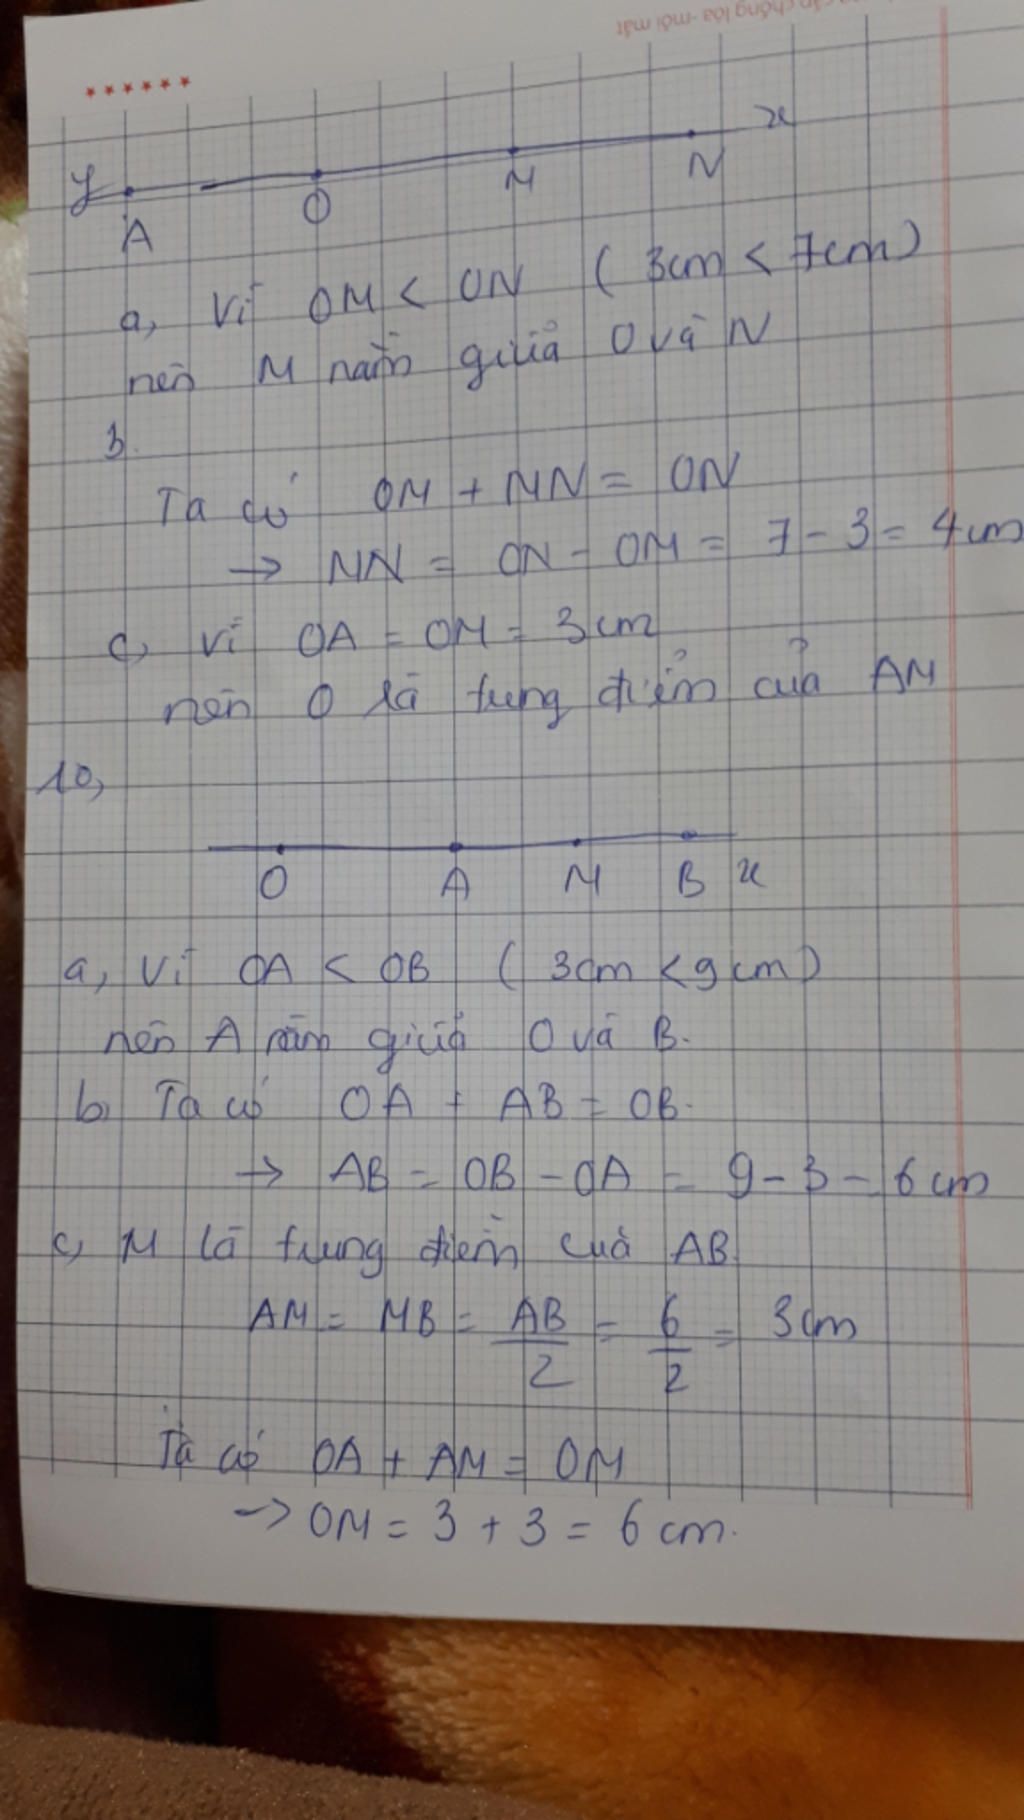 chống lóa - mỏi mắt
y A O M N x
a, Vì OM < ON ( 3cm < 7cm )
nên M nằm giữa O và N
b.
Ta có OM + MN = ON
→ MN = ON - OM = 7 - 3 = 4cm
c, Vì OA = OM = 3cm
nên O là trung điểm của AM
10,
O A M B x
a, Vì OA < OB ( 3cm < 9cm )
nên A nằm giữa O và B.
b, Ta có OA + AB = OB.
→ AB = OB - OA = 9 - 3 = 6cm
c, M là trung điểm của AB.
AM = MB = AB/2 = 6/2 = 3cm
Ta có OA + AM = OM
→ OM = 3 + 3 = 6cm.